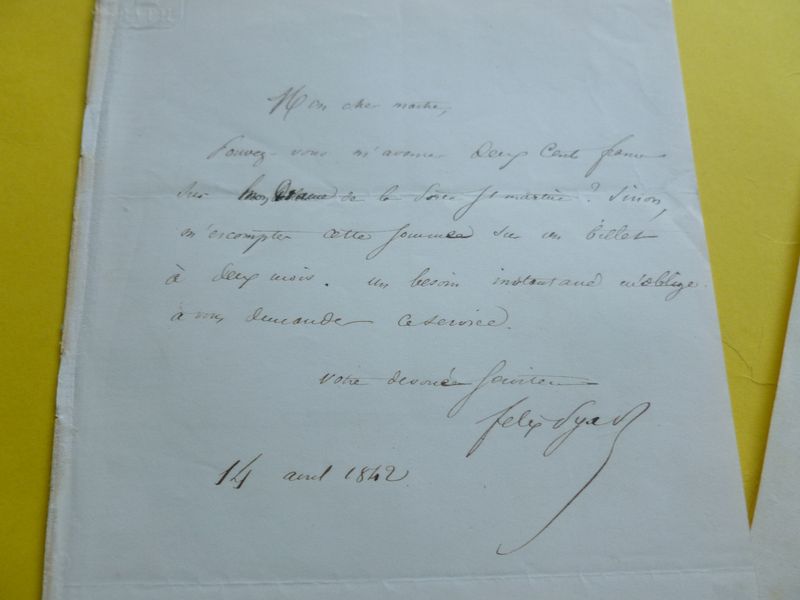 Mon cher maitre,
Pouvez-vous m'avancer Deux Cents francs
sur mon Drame de la Porte St martin? Sinon,
m'escompter cette somme sur un billet
à deux mois. un besoin instantané m'oblige
à vous demander ce service.
votre devoué serviteur
felix Pyat
14 avril 1842